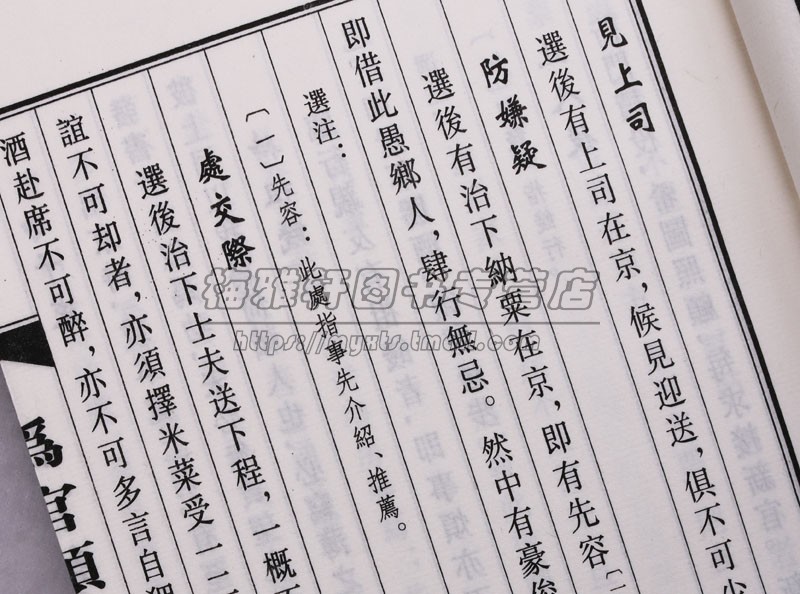 見上司
選後有上司在京，候見迎送，俱不可少
防嫌疑
選後有治下納粟在京，即有先容〔一
即借此愚鄉人，肆行無忌。然中有豪俊
選注：
〔一〕先容：此處指事先介紹、推薦。
處交際
選後治下士夫送下程，一概不
誼不可却者，亦須擇米菜受一二
酒赴席不可醉，亦不可多言自
為官須
梅雅轩图书专营店
https://myxts.tmall.com